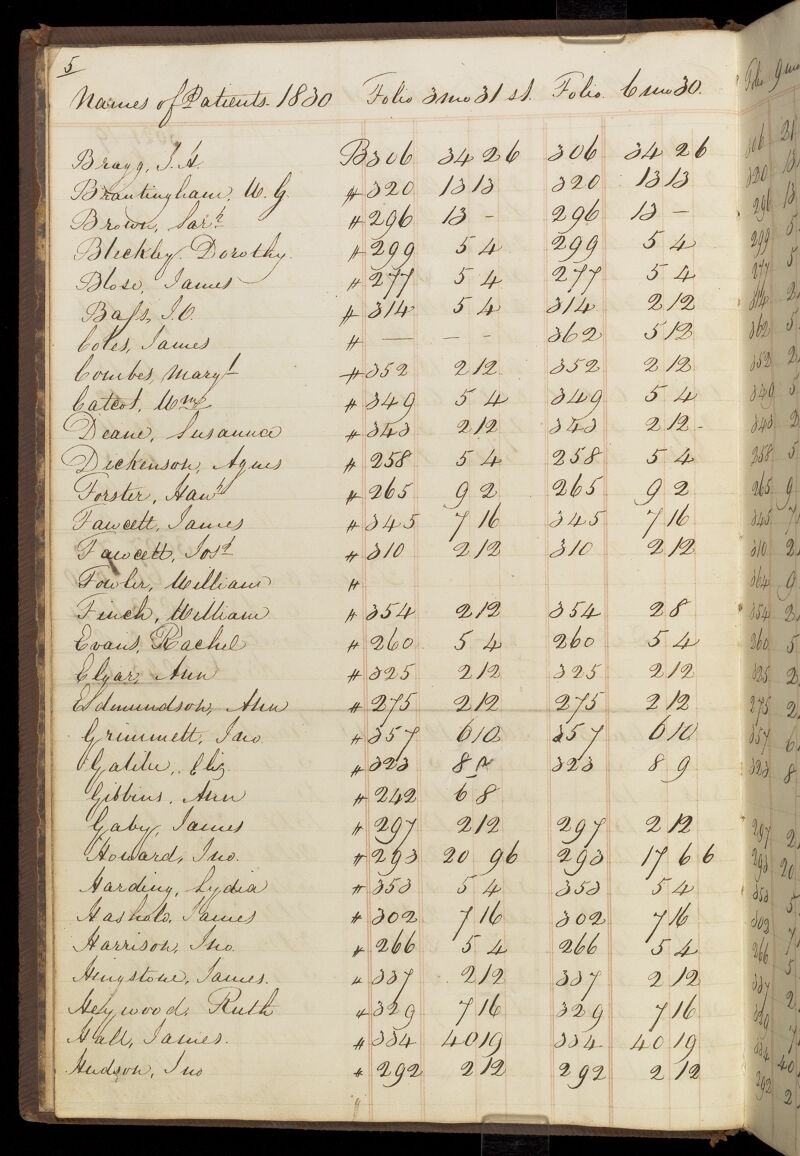 5
Names of Patients 1830 Folio 3 mo 31 st. Folio 6 mo 30.
Bragg, J. A. B 306 34 2 6 306 34 2 6
Brantingham, W. G. " 320 13 13 320 13 13
Brown, Sarh " 296 13 – 296 13 –
Bleckly, Dorothy " 299 5 4 299 5 4
Blose, James " 277 5 4 277 5 4
Bass, J. O. " 314 5 4 314 2 12
Coles, James " – – – 362 5 12
Combes, Mary " 352 2 12 352 2 12
Catcot, Wm " 349 5 4 349 5 4
Deane, Susanna " 343 2 12 343 2 12 -
Dickenson, Agnes " 258 5 4 258 5 4
Forster, Hanh " 265 9 2 265 9 2
Fawcett, James " 345 7 16 345 7 16
Fawcett, Josh " 310 2 12 310 2 12
Fowler, William "
Finch, William " 354 2 12 354 2 8
Evans, Rachel " 260 5 4 260 5 4
Elgar, Ann " 325 2 12 325 2 12
Edmundson, Ann " 275 2 12 275 2 12
Grimmett, Jno. " 357 6 10 357 6 10
Galilee, Eliz " 323 8 323 8 9
Gibbins, Ann " 242 6 8
Gaby, James " 297 2 12 297 2 12
Howard, Jno. " 293 20 9 6 293 17 6 6
Harding, Lydia " 353 5 4 353 5 4
James " 302 7 16 302 7 16
Harrison, Jno. " 266 5 4 266 5 4
Hingstone, James. " 337 2 12 337 2 12
Heywood, Ruth " 329 7 16 329 7 16
Hall, James. " 334 40 19 334 40 19
Hudson, Jno " 292 2 12 292 2 12